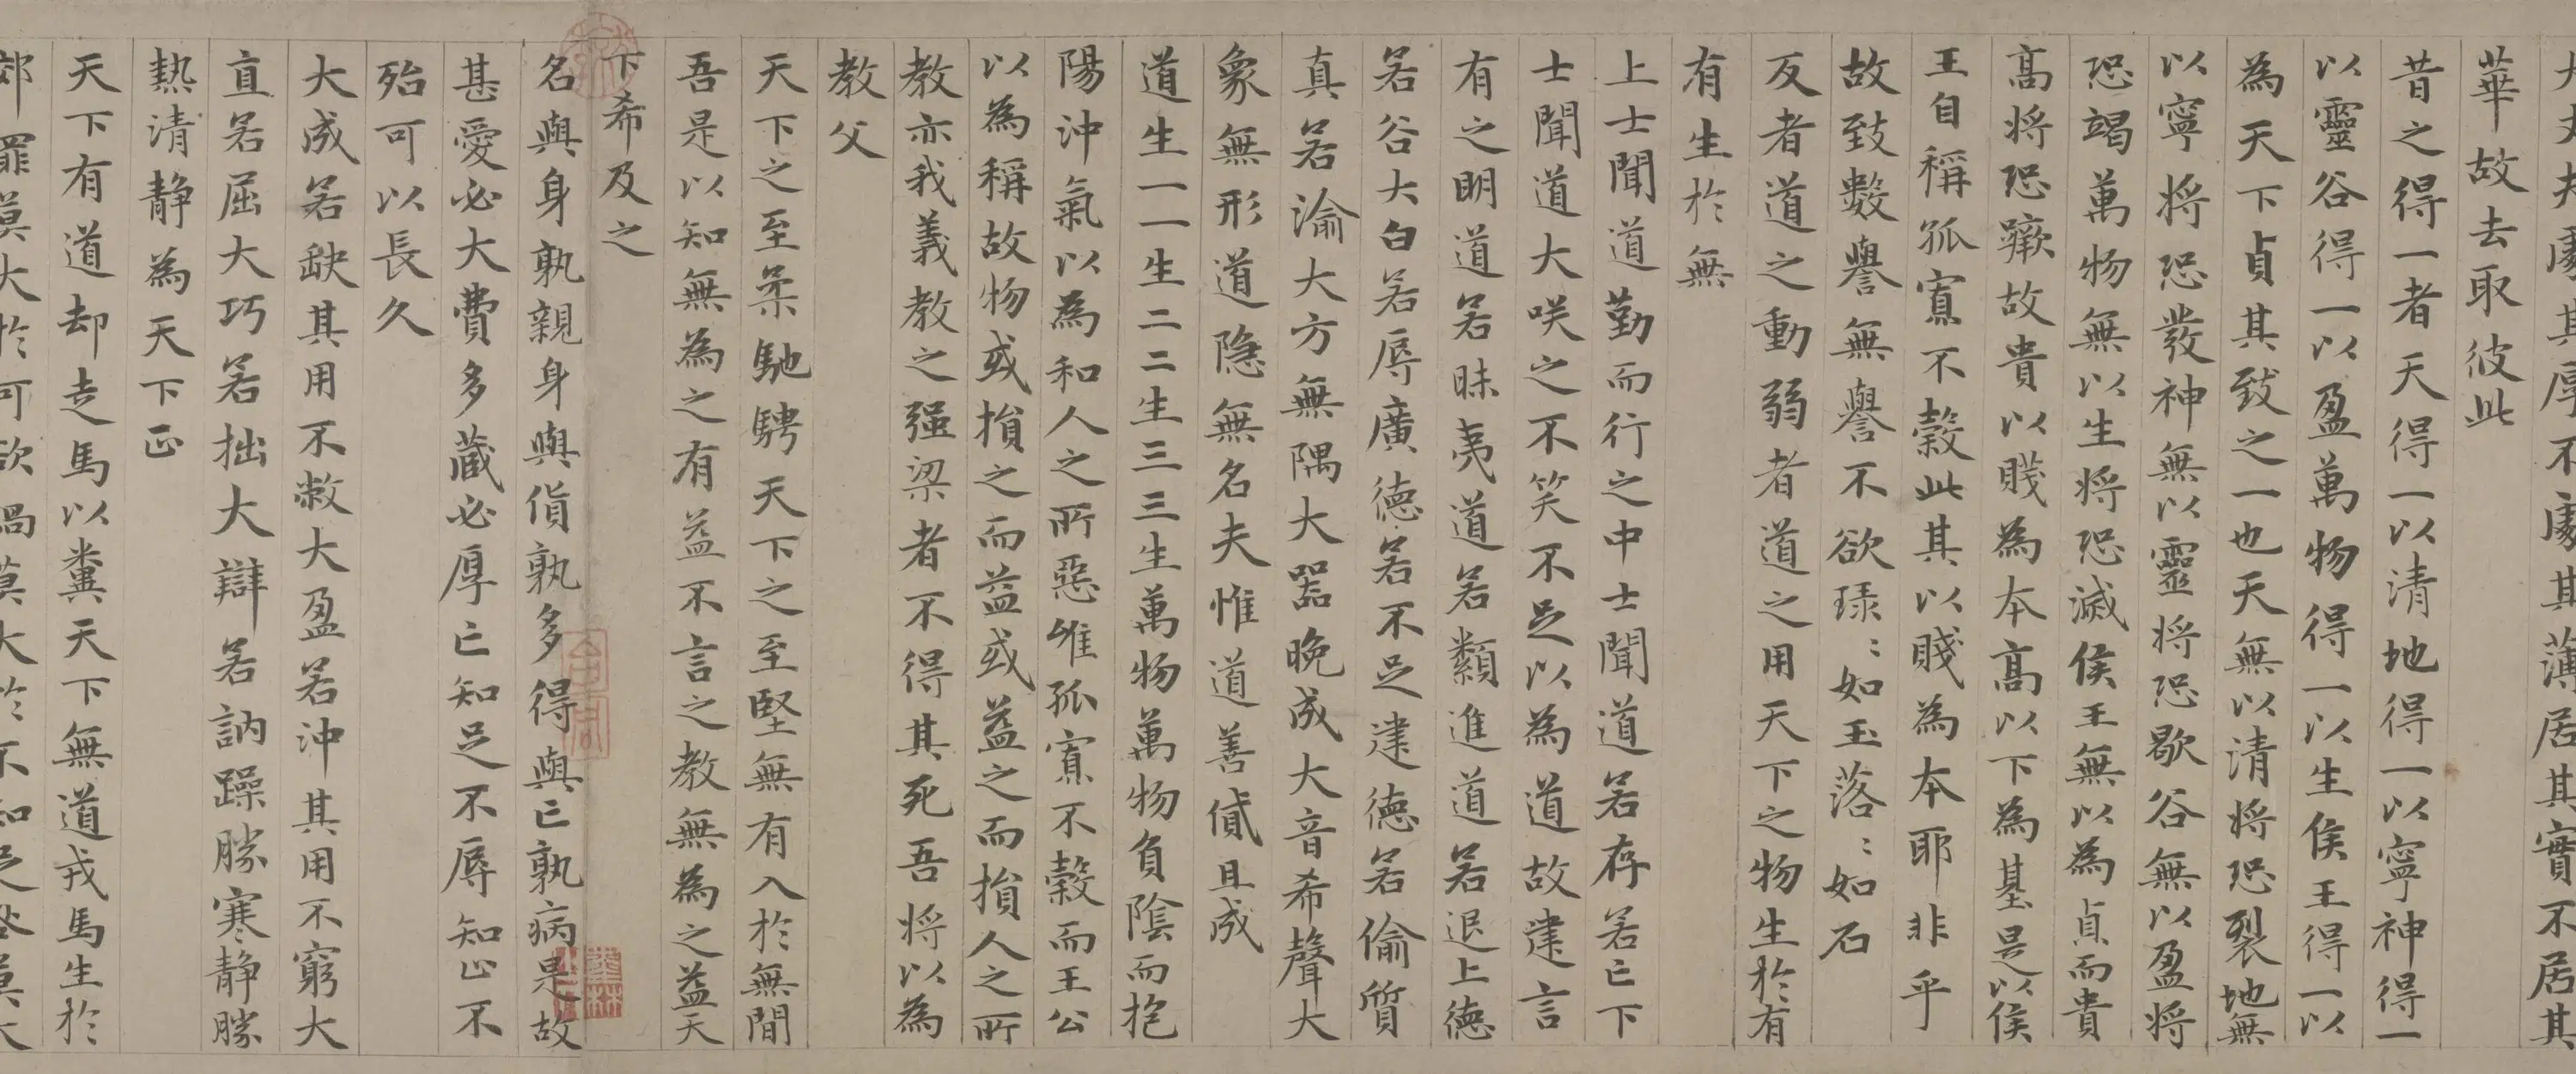 大丈夫處其厚不處其薄居其實不居其
華故去取彼此
昔之得一者天得一以清地得一以寧神得一
以靈谷得一以盈萬物得一以生侯王得一以
為天下貞其致之一也天無以清將恐裂地無
以寧將恐發神無以靈將恐歇谷無以盈將
恐竭萬物無以生將恐滅侯王無以為貞而貴
高將恐蹶故貴以賤為本高以下為基是以侯
王自稱孤寡不穀此其以賤為本耶非乎
故致數譽無譽不欲琭〻如玉落〻如石
反者道之動弱者道之用天下之物生於有
有生於無
上士聞道勤而行之中士聞道若存若亡下
士聞道大咲之不笑不足以為道故建言
有之明道若昧夷道若類進道若退上德
若谷大白若辱廣德若不足建德若偷質
真若渝大方無隅大器晚成大音希聲大
象無形道隱無名夫惟道善貸且成
道生一一生二二生三三生萬物萬物負陰而抱
陽沖氣以為和人之所惡唯孤寡不穀而王公
以為稱故物或損之而益或益之而損人之所
教亦我義教之强梁者不得其死吾將以為
教父
天下之至柔馳騁天下之至堅無有入於無間
吾是以知無為之有益不言之教無為之益天
下希及之
名與身孰親身與貨孰多得與亡孰病是故
甚愛必大費多藏必厚亡知足不辱知止不
殆可以長久
大成若缺其用不敝大盈若沖其用不窮大
直若屈大巧若拙大辯若訥躁勝寒静勝
熱清静為天下正
天下有道却走馬以糞天下無道戎馬生於
郊罪莫大於可欲禍莫大於不知足咎莫大